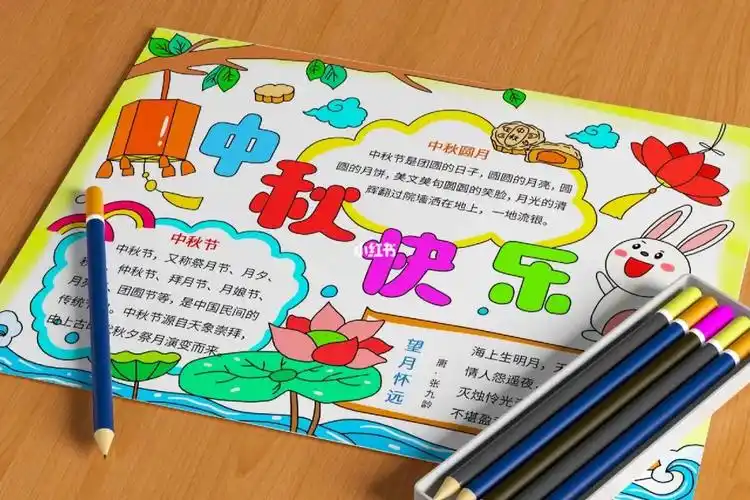 中秋快乐
中秋圆月
中秋节是团圆的日子，圆圆的月亮，圆
圆的月饼，美文美句圆圆的笑脸，月光的清
辉翻过院墙洒在地上，一地流银。
小红书
中秋节
中秋节，又称祭月节、月夕、
秋节、仲秋节、拜月节、月娘节、
月亮节、团圆节等，是中国民间的
传统节日。中秋节源自天象崇拜，
由上古时代秋夕祭月演变而来。
望月怀远
唐·张九龄
海上生明月，天
情人怨遥夜，
灭烛怜光
不堪盈